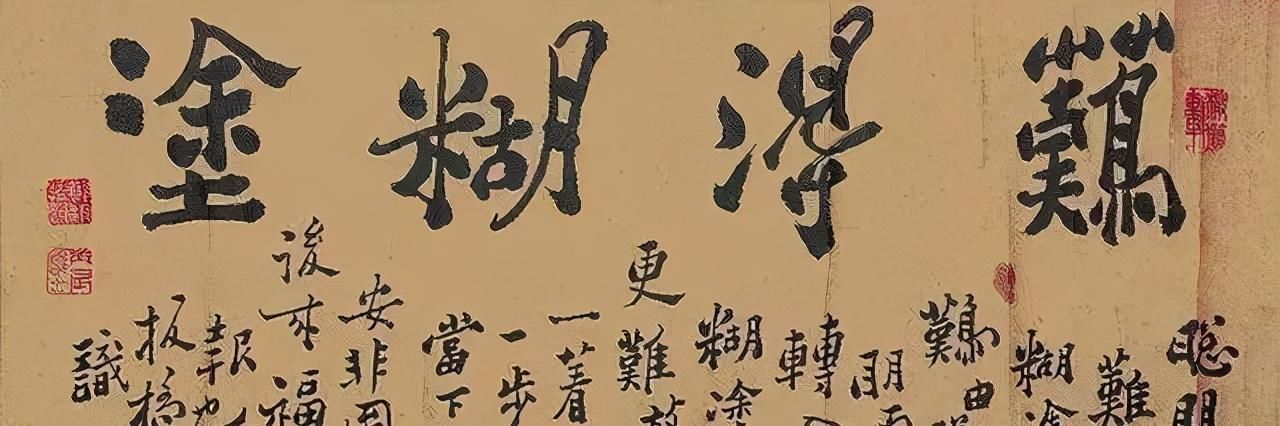 難得糊塗
聰明
難
糊塗
難由
明
轉
糊塗
更難放
一着
一步
當下
安非圖
後來福
報也
板橋
識